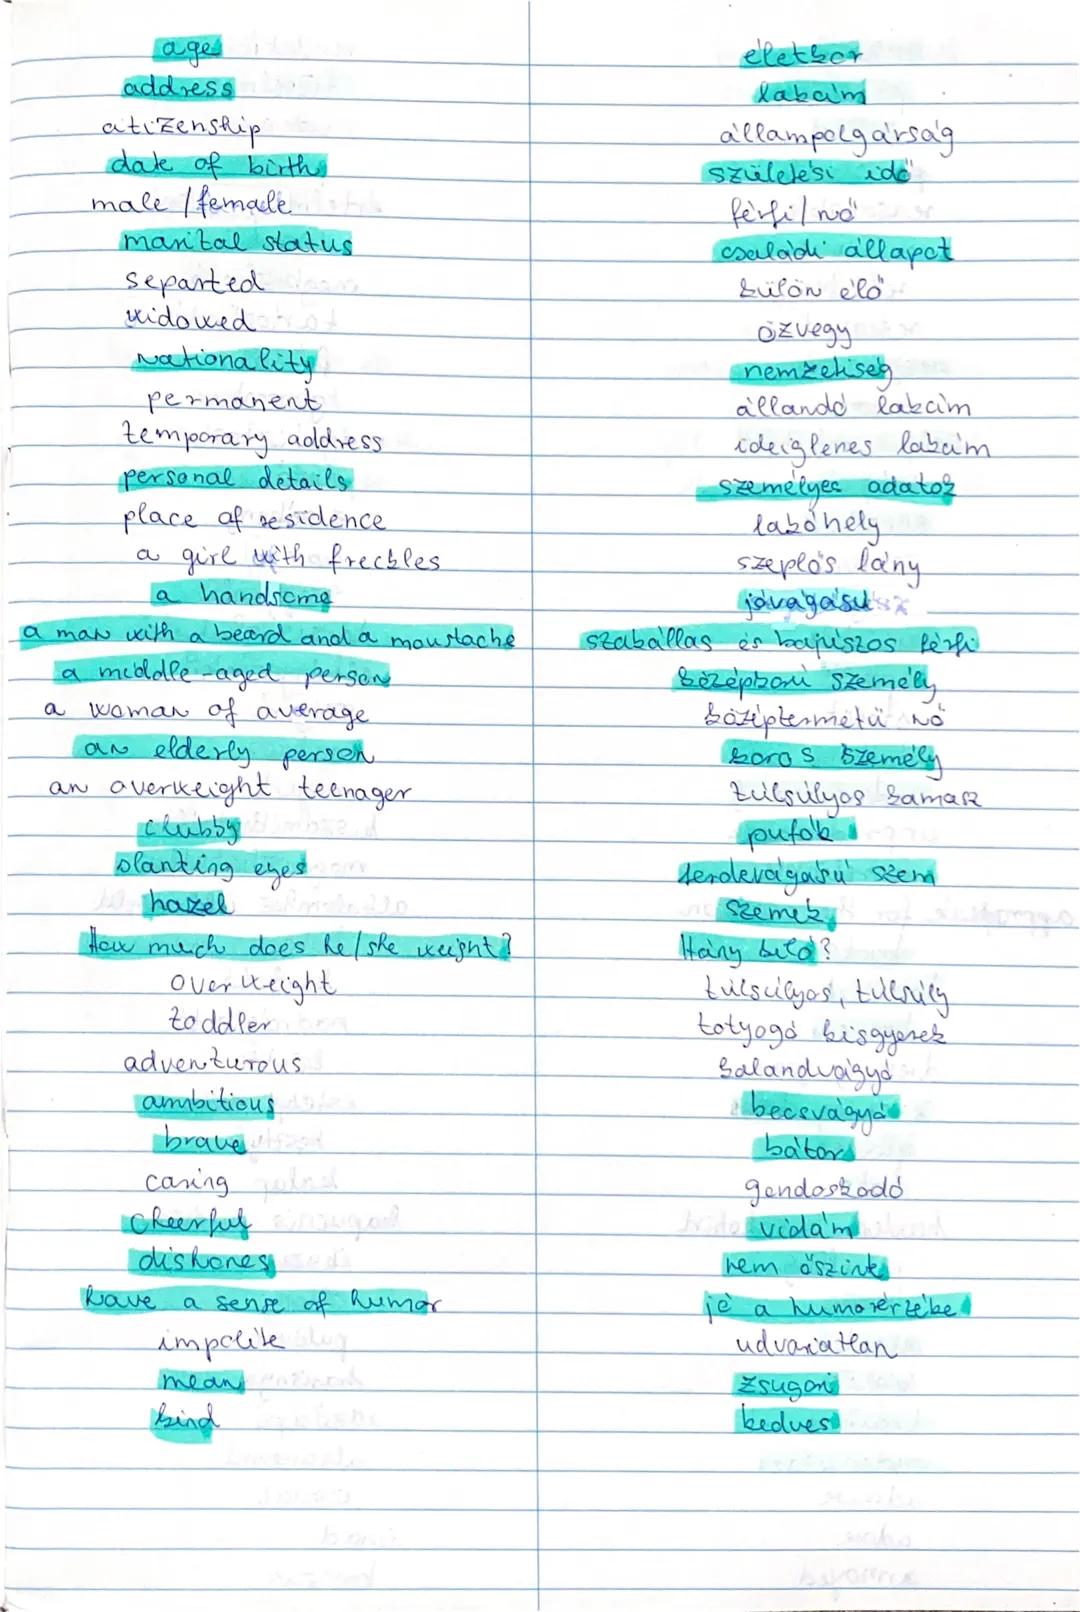 age életkor
address lakcím
citizenship állampolgárság
date of birth születési idő
male / female férfi / nő
marital status családi állapot
separted külön élő
widowed özvegy
nationality nemzetiség
permanent állandó lakcím
temporary address ideiglenes lakcím
personal details személyes adatok
place of residence lakóhely
a girl with freckles szeplős lány
a handsome jóvágású
a man with a beard and a moustache szakállas és bajuszos férfi
a middle-aged person középkorú személy
a woman of average középtermetű nő
an elderly person koros személy
an overweight teenager túlsúlyos kamasz
chubby pufók
slanting eyes ferdevágású szem
hazel szemek
How much does he/she weight? Hány kiló?
overweight túlsúlyos, túlsúly
toddler totyogó kisgyerek
adventurous kalandvágyó
ambitious becsvágyó
brave bátor
caring gondoskodó
cheerful vidám
dishones nem őszinte
have a sense of humor jó a humorérzéke
impolite udvariatlan
mean zsugori
kind kedves